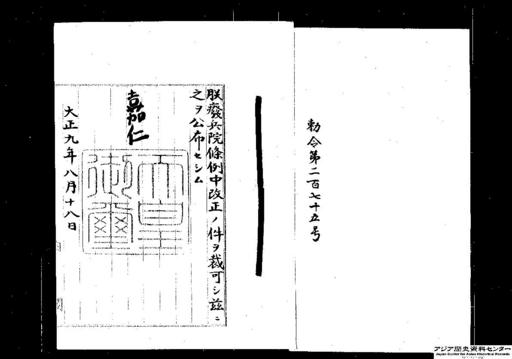 勅令第二百七十五号
朕癈兵院條例中改正ノ件ヲ裁可シ茲ニ
之ヲ公布セシム
嘉仁
天皇御璽
大正九年八月十八日
アジア歴史資料センター
Japan Center for Asian Historical Records